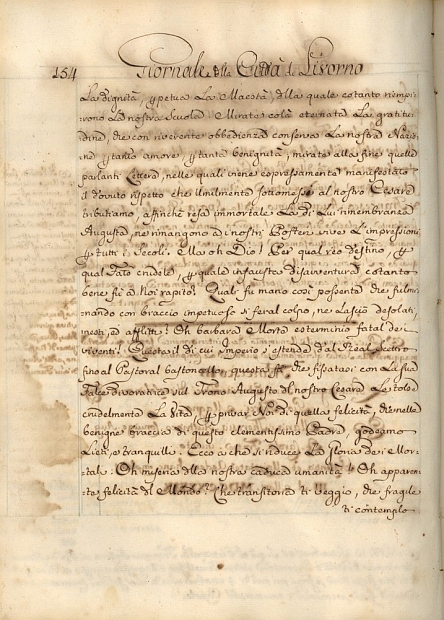 154 Giornale della Città di Livorno
La dignità, e perpetua La Maestà, della quale cotanto riempi-
rono La nostra Scuola! Mirate colà eternata La gratitu-
dine, che con riverente obbedienza conserva La nostra Nazio-
ne per tanto amore, e tanta benignità, mirate alla fine quelle
parlanti Lettere, nelle quali viene espressamente manifestato
il dovuto rispetto che umilmente sottomesse al nostro Cesare
tributiamo, affinchè resa immortale La di Lui rimembranza
Augusta, ne rimangono ad nostri Posteri vive L'impressioni
per tutti i Secoli. Ma oh Dio! Per qual reo destino, per
qual Fato crudele, per quale infausta disavventura cotanto
bene fu a Noi rapito? Quali fu mano così possente che fulmi-
nando con braccio impetuoso sì feral colpo, ne Lasciò desolati,
mesti, ed afflitti! Oh barbara Morte esterminio fatale dei
viventi! Questa il di cui Imperio s'estende dal Real Scettro
fino al Pastoral bastoncello, questa che fissatasi con La sua
Falce divoratrice sul Trono Augusto del nostro Cesare Le tolse
crudelmente La Vita, per privar Noi di quella felicità, che nelle
benigne braccia di questo clementissimo Padre godeamo
Lieti, e tranquilli. Ecco a che si riduce La gloria dei Mor-
tali. Oh miseria della nostra caduca umanità! Oh apparen-
te felicità del Mondo! Che transitoria ti veggio, che fragile
ti contemplo